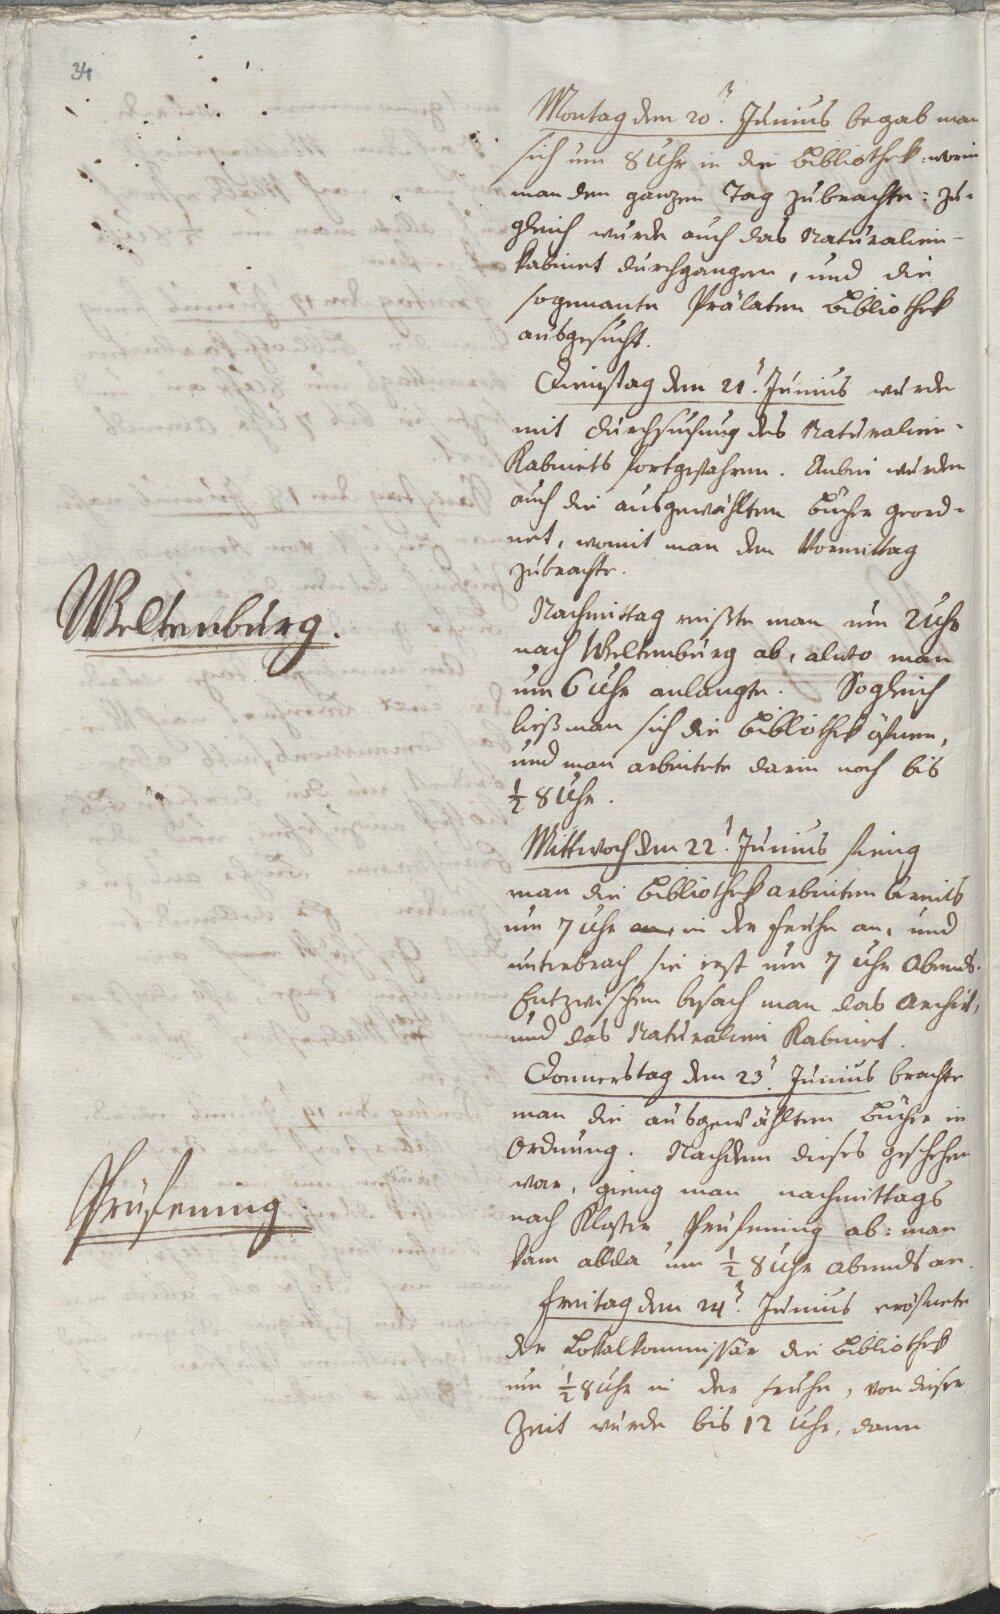 24
Montag den 20ͭ. Junius begab man
sich um 8 Uhr in die Bibliothek: worin
man den ganzen Tag zubrachte: zu-
gleich wurde auch das Naturalien-
kabinet durchgangen, und die
sogenante Prälaten Bibliothek
ausgesucht.
Dienstag den 21ͭ. Junius wurde
mit Durchsuchung des Naturalien-
Kabinets fortgefahren. Anbei wurden
auch die ausgewählten Bücher geord-
net, womit man den Vormittag
zubrachte.
Weltenburg.
Nachmittag reißte man um 2 Uhr
nach Weltenburg ab, alwo man
um 6 Uhr anlangte. Sogleich
ließ man sich die Bibliothek öfnen,
und man arbeitete darin noch bis
½ 8 Uhr.
Mittwoch den 22ͭ. Junius fieng
man die Bibliothekarbeiten bereits
um 7 Uhr in der Frühe an, und
unterbrach sie erst um 7 Uhr Abends.
Entzwischen besach man das Archiv,
und das Naturalien Kabinet.
Donnerstag den 23ͭ. Junius brachte
man die ausgewählten Bücher in
Ordnung. Nachdem dieses geschehen
war, gieng man nachmittags
Prüfening.
nach Kloster Prüfening ab: man
kam allda um ½ 8 Uhr Abends an.
Freitag den 24ͭ. Junius eröfnete
der Lokalkommissär die Bibliothek
um ½ 8 Uhr in der Fruhe, von dieser
Zeit wurde bis 12 Uhr, dann